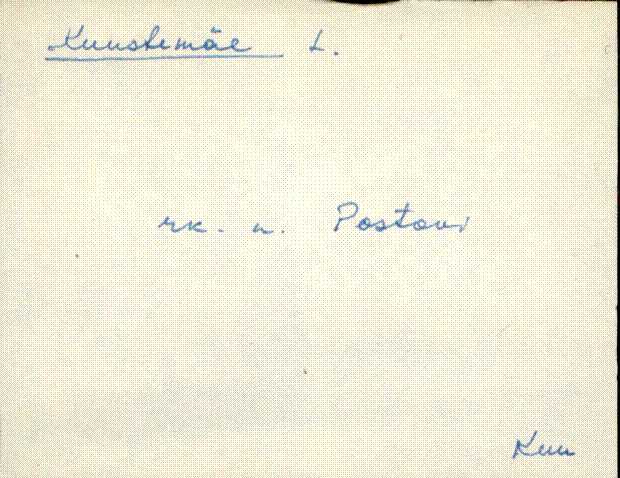 Kuustemäe L.
rk. n. Postovi
Kuu